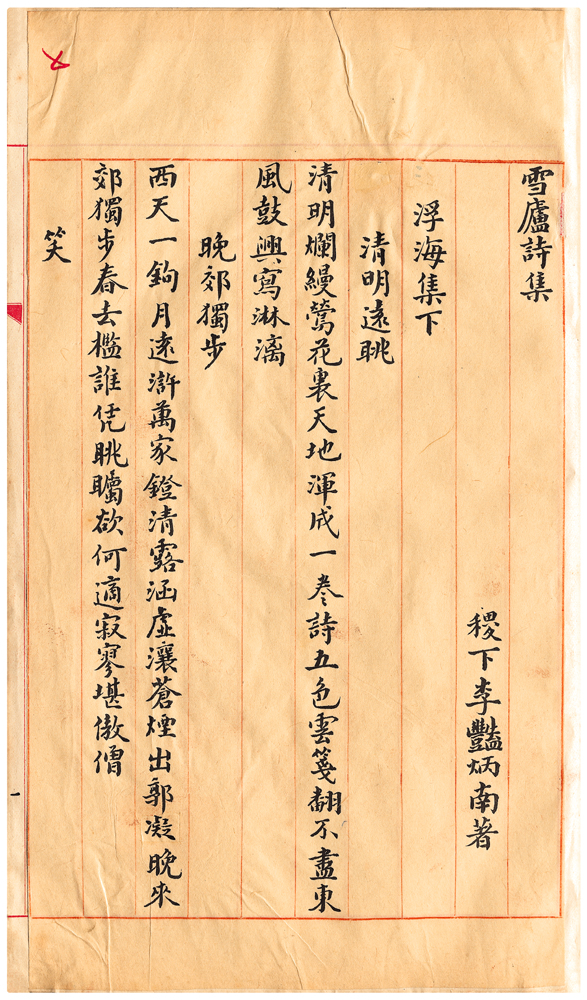 雪廬詩集
稷下李豔炳南著
浮海集下
清明遠眺
清明爛縵鶯花裏天地渾成一卷詩五色雲箋翻不盡東
風鼓興寫淋漓
晚郊獨步
西天一鉤月遠滸萬家鐙清露涵虛瀼蒼煙出郭凝晚來
郊獨步春去檻誰凭眺矚欲何適寂寥堪傲僧
笑
一